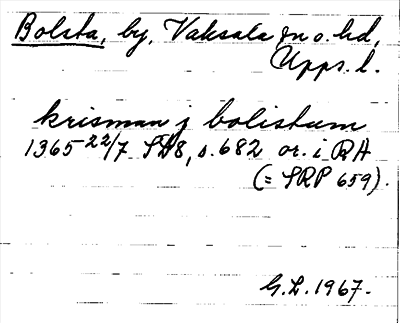 Bolsta, by, Vaksala sn o. hd,
Upps. l.
krisman j bolistum
1365 22/7 SD8, s. 682 or. i RA
(= SRP 659).
G.L. 1967.